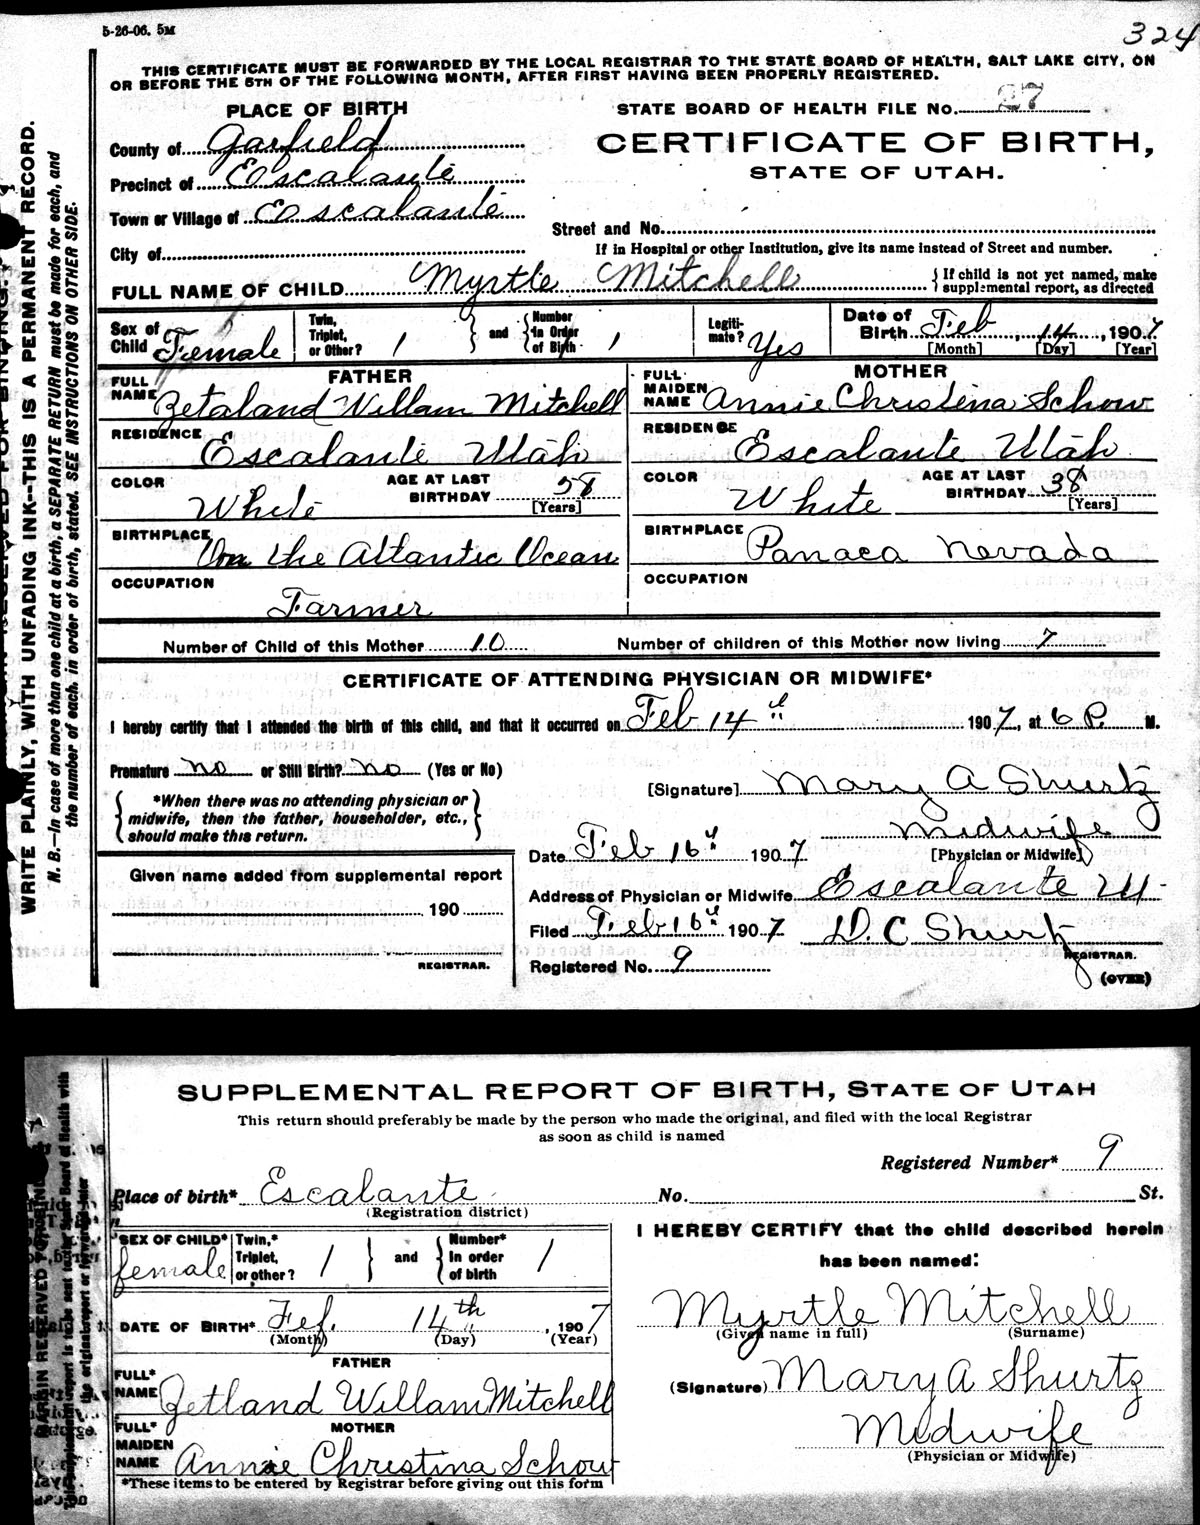 5-26-06. 5M
324
THIS CERTIFICATE MUST BE FORWARDED BY THE LOCAL REGISTRAR TO THE STATE BOARD OF HEALTH, SALT LAKE CITY, ON
OR BEFORE THE 5TH OF THE FOLLOWING MONTH, AFTER FIRST HAVING BEEN PROPERLY REGISTERED.
PLACE OF BIRTH
STATE BOARD OF HEALTH FILE No. 27
County of Garfield
CERTIFICATE OF BIRTH,
STATE OF UTAH.
Precinct of Escalante
Town or Village of Escalante
Street and No.
City of
If in Hospital or other Institution, give its name instead of Street and number.
FULL NAME OF CHILD Myrtle Mitchell
If child is not yet named, make
supplemental report, as directed
Sex of Child Female
Twin, Triplet, or Other? 1 and Number in Order of Birth 1
Legitimate? Yes
Date of Birth Feb 14, 1907
[Month] [Day] [Year]
FATHER
MOTHER
FULL NAME Zetaland Willam Mitchell
FULL MAIDEN NAME Annie Christina Schow
RESIDENCE Escalante Utah
RESIDENCE Escalante Utah
COLOR White AGE AT LAST BIRTHDAY 58 [Years]
COLOR White AGE AT LAST BIRTHDAY 38 [Years]
BIRTHPLACE On the Atlantic Ocean
BIRTHPLACE Panaca Nevada
OCCUPATION Farmer
OCCUPATION
Number of Child of this Mother 10 Number of children of this Mother now living 7
CERTIFICATE OF ATTENDING PHYSICIAN OR MIDWIFE*
I hereby certify that I attended the birth of this child, and that it occurred on Feb 14 1907, at 6 P. M.
Premature no or Still Birth? no (Yes or No)
[Signature] Mary A Shurtz
*When there was no attending physician or
midwife, then the father, householder, etc.,
should make this return.
Midwife
Date Feb 16 1907 [Physician or Midwife]
Given name added from supplemental report
190
REGISTRAR.
Address of Physician or Midwife Escalante Ut
Filed Feb 16 1907 D. C Shurtz
REGISTRAR.
Registered No. 9
(OVER)
WRITE PLAINLY, WITH UNFADING INK--THIS IS A PERMANENT RECORD.
N. B.—In case of more than one child at a birth, a SEPARATE RETURN must be made for each, and
the number of each, in order of birth, stated. SEE INSTRUCTIONS ON OTHER SIDE.
SUPPLEMENTAL REPORT OF BIRTH, STATE OF UTAH
This return should preferably be made by the person who made the original, and filed with the local Registrar
as soon as child is named
Registered Number* 9
Place of birth* Escalante No. St.
(Registration district)
SEX OF CHILD* female
Twin,* Triplet, or other? 1 and Number* in order of birth 1
I HEREBY CERTIFY that the child described herein
has been named:
DATE OF BIRTH* Feb. 14th, 1907
(Month) (Day) (Year)
Myrtle Mitchell
(Given name in full) (Surname)
FATHER
FULL* NAME Zetland Willam Mitchell
(Signature) Mary A Shurtz
MOTHER
FULL* MAIDEN NAME Annie Christina Schow
Midwife
(Physician or Midwife)
*These items to be entered by Registrar before giving out this form